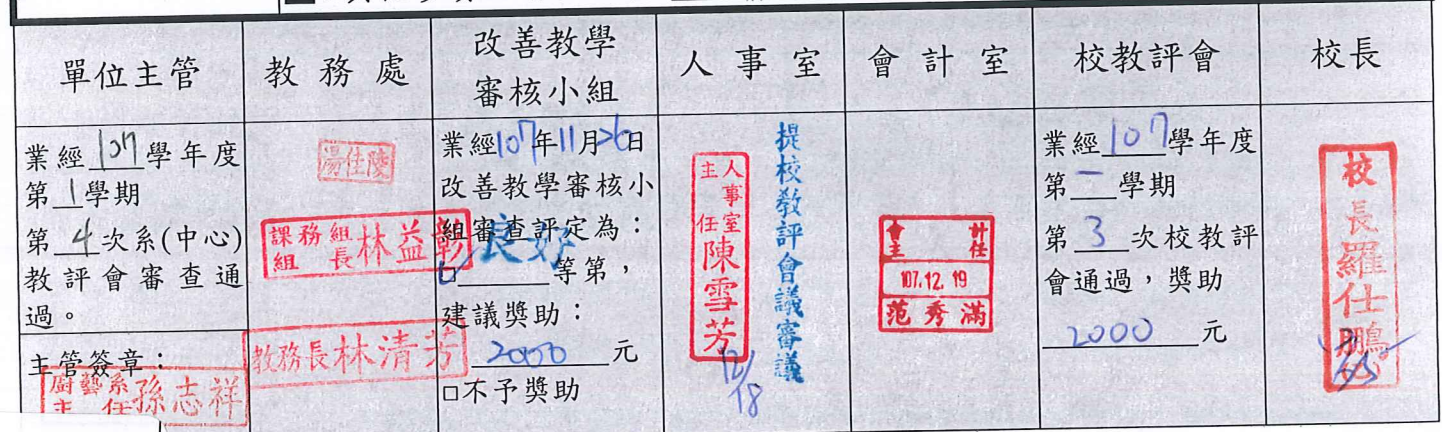 單位主管
教務處
改善教學
審核小組
人事室
會計室
校教評會
校長
業經107學年度
第1學期
第4次系(中心)
教評會審查通
過。
主管簽章：
廚藝系
主任
孫志祥
湯仕陵
課務組
組長
林益彰
教務長林清芳
業經107年11月26日
改善教學審核小
組審查評定為：
良好等第，
建議獎助：
2000元
□不予獎助
人事室
主任
陳雪芳
12/18
提校教評會議審議
會計
主任
107.12.19
范秀滿
業經107學年度
第一學期
第3次校教評
會通過，獎助
2000元
校長羅仕鵬